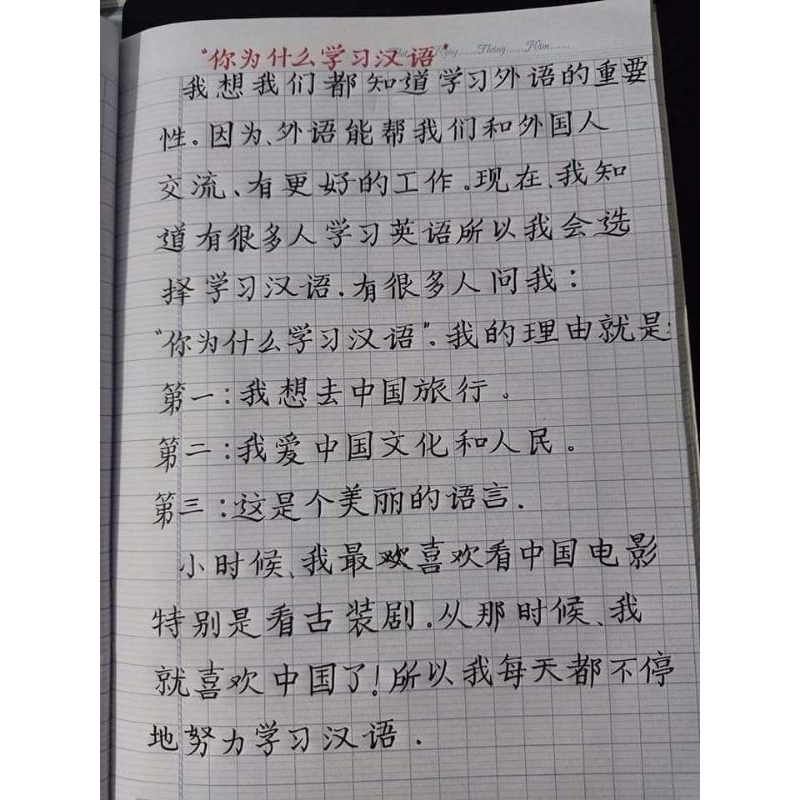 "你为什么学习汉语"
Ngày......Tháng......Năm......
我想我们都知道学习外语的重要
性.因为、外语能帮我们和外国人
交流、有更好的工作。现在、我知
道有很多人学习英语所以我会选
择学习汉语.有很多人问我：
"你为什么学习汉语".我的理由就是:
第一：我想去中国旅行。
第二：我爱中国文化和人民。
第三：这是个美丽的语言.
小时候、我最欢喜欢看中国电影
特别是看古装剧.从那时候、我
就喜欢中国了!所以我每天都不停
地努力学习汉语.